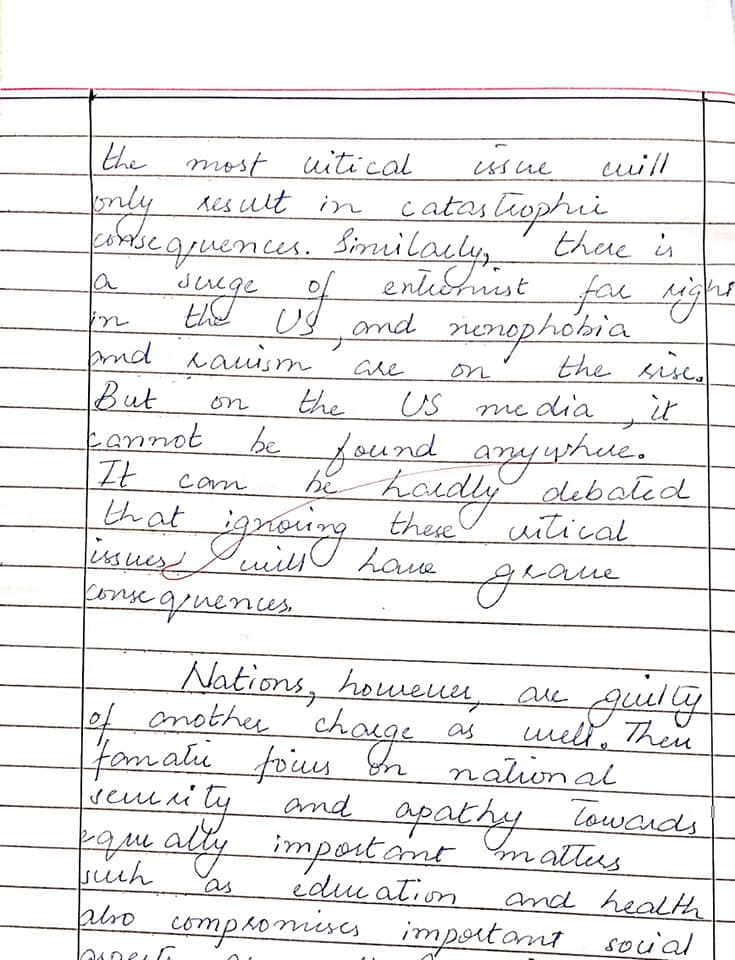 the most critical issue will
only result in catastrophic
consequences. Similarly, there is
a surge of extremist far right
in the US, and xenophobia
and racism are on the rise.
But on the US media, it
cannot be found anywhere.
It can be hardly debated
that ignoring these critical
issues will have grave
consequences.
Nations, however, are guilty
of another charge as well. Their
fanatic focus on national
security and apathy towards
equally important matters
such as education and health
also compromises important social